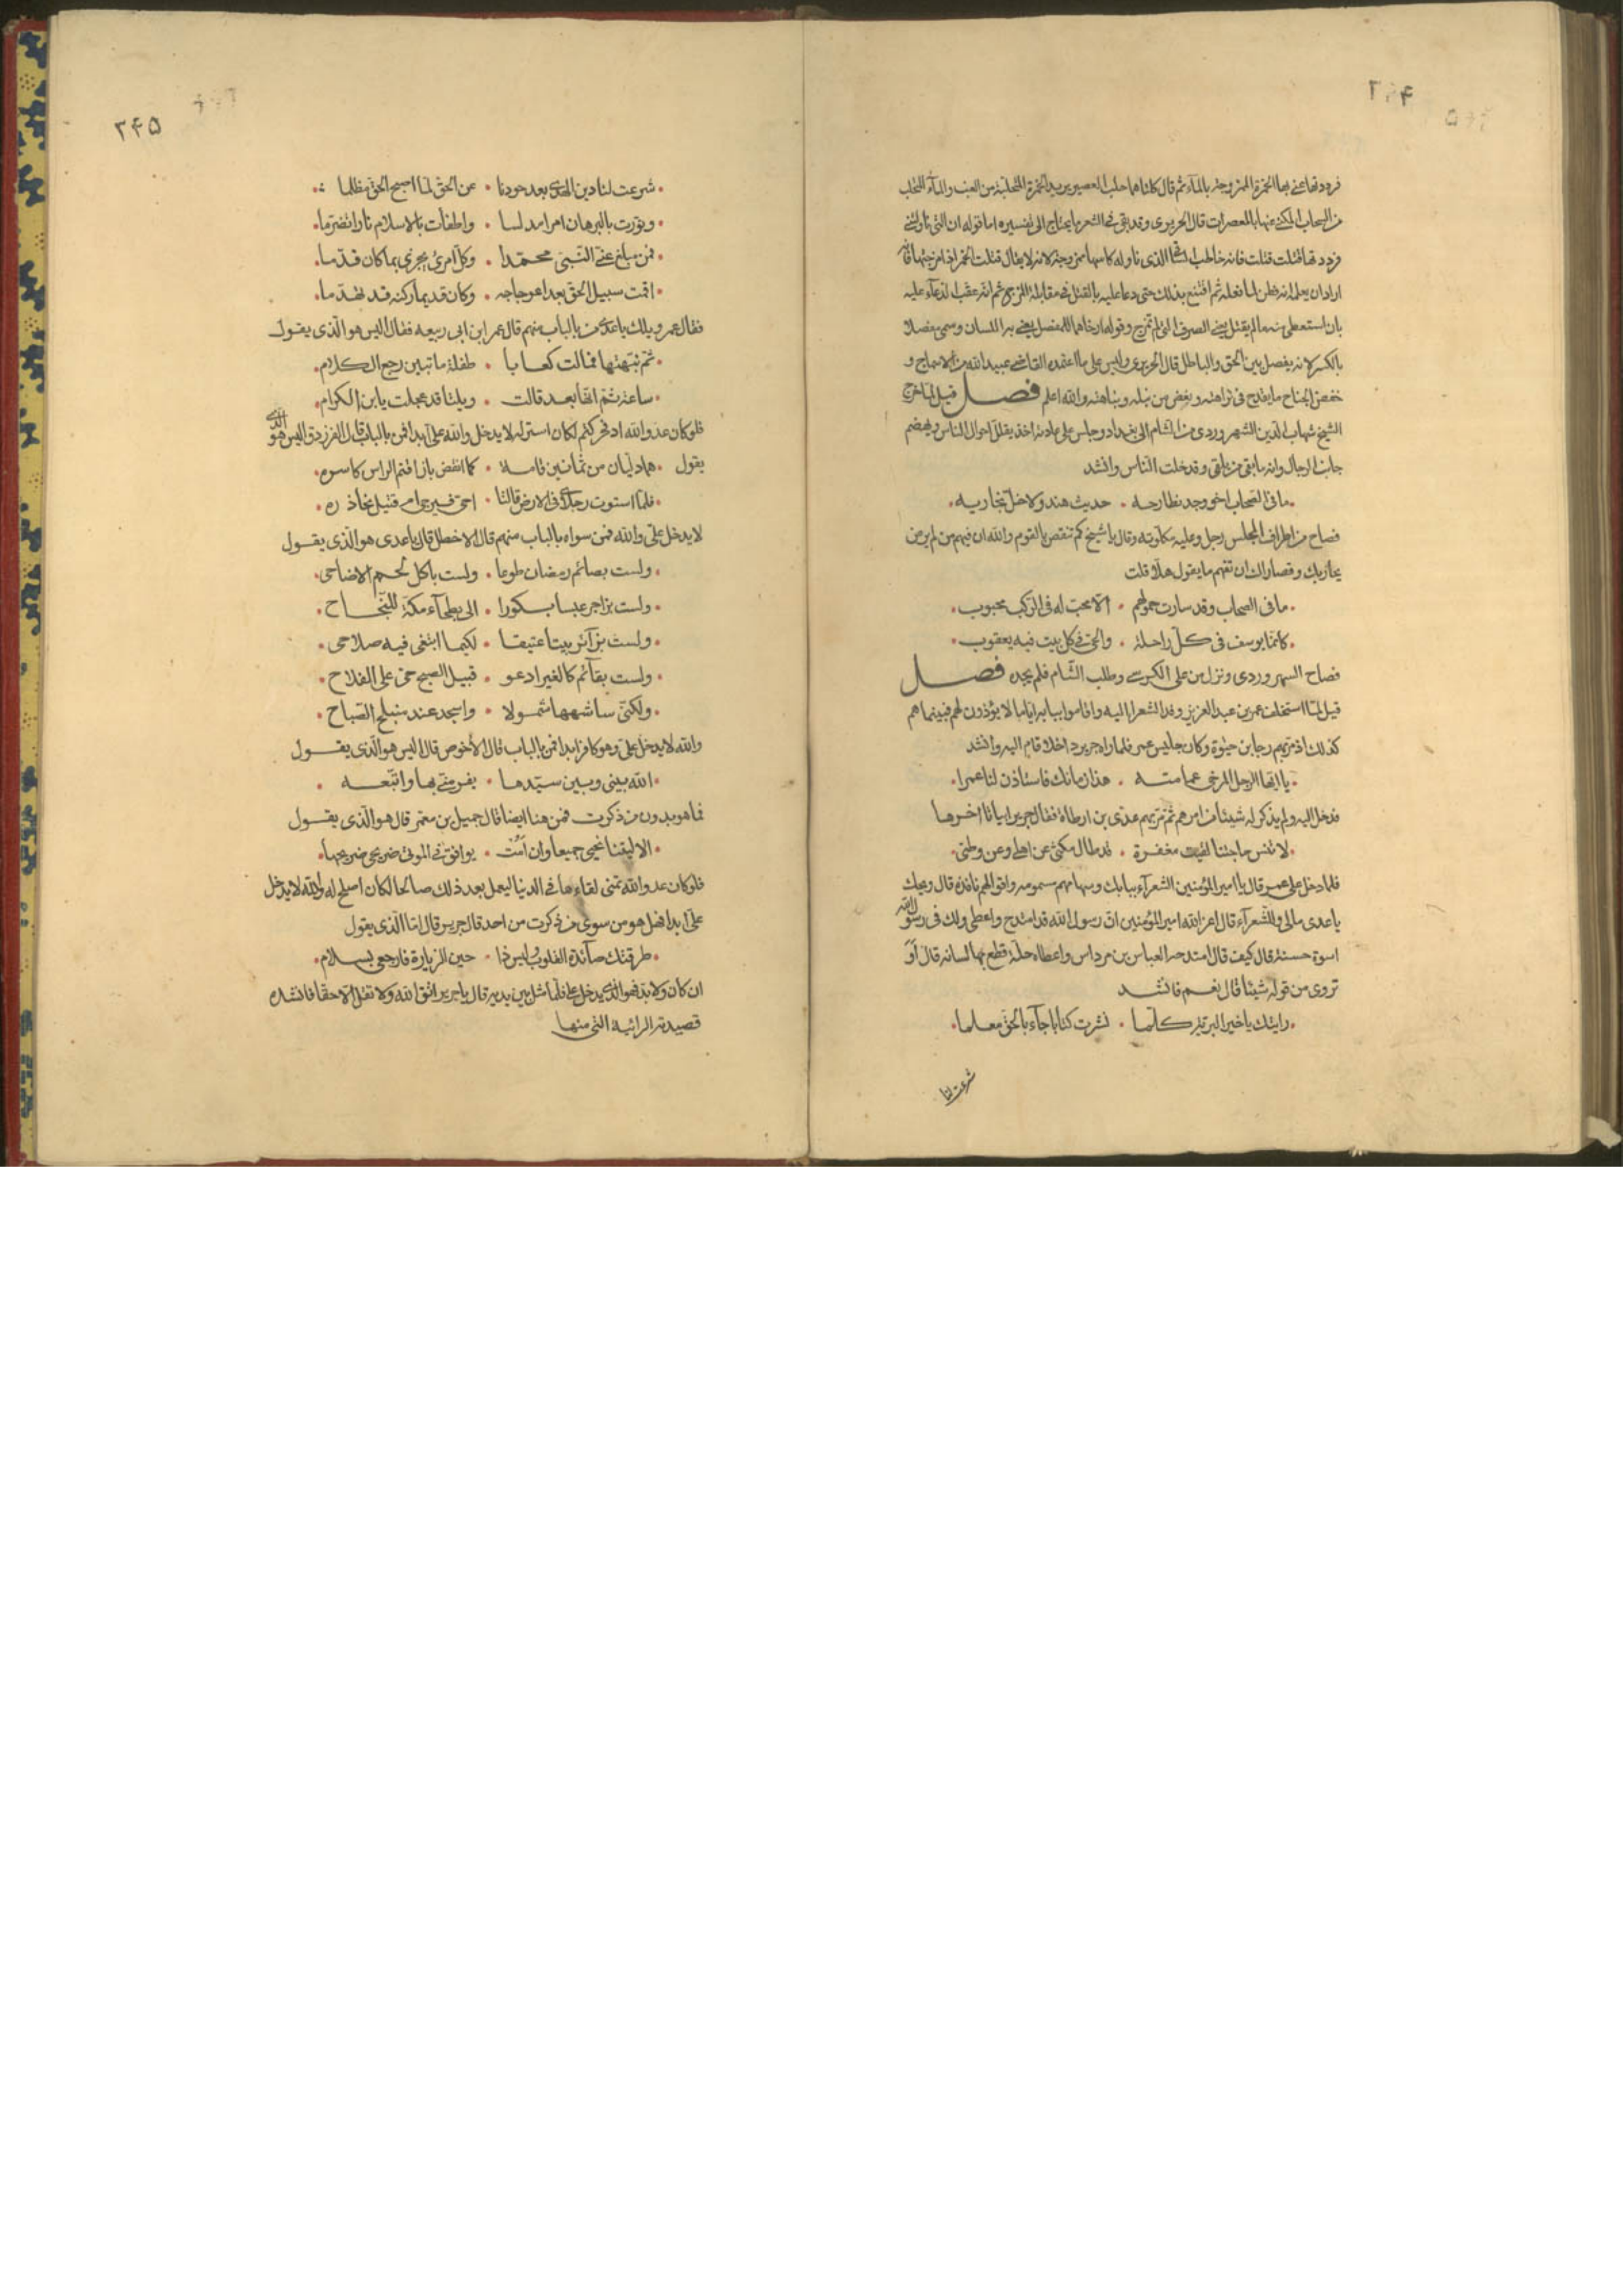 فرددتها عنى بها الخمرة الممزوجة بالمآء ثم قال كلتاهما حلب العصير يريد الخمرة المتحلبة من العنب والمآء المتحلب
من السحاب المكنى عنها بالمعصرات قال الحريرى وقد بقى فى الشعر ما يحتاج الى تفسيره اما قوله ان التى ناولتنى
فرددتها قتلت قتلت فانه خاطب الساقى الذى ناوله كاسها ممزوجة لانه يقال قتلت الخمر اذا مزجتها فكانه
اراد ان يعلمه انه فطن لما فعله ثم اقتنع بذلك حتى دعا عليه بالقتل فى مقابلة المزج ثم انه عقب الدعآء عليه
بان استعطى منه مالم يقتل يعنى الصرف التى لم تمزج وقوله ارخاهما للمفصل يعنى به اللسان وسمى مفصلا
بالكسر لانه يفصل بين الحق والباطل قال الحريرى وليس على ما اعتمده القاضى عبيد الله من الاسماح و
خفض الجناح ما يقدح فى نزاهته ويغض من نبله ونباهته والله اعلم فصل قيل لما خرج
الشيخ شهاب الدين السهروردى من الشام الى بغداد وجلس على عادته اخذ يقلل احوال الناس ويهضم
جانب الرجال وانه ما بقى من يلقى وقد خلت الناس وانشد
ما فى الصحاب اخو وجد نطارحه • حديث هند ولا خل نجاريه
فصاح من اطراف المجلس رجل وعليه ملوته وقال يا شيخ كم تنقص بالقوم والله ان فيهم من لم يرض
يجاريك وقصاراك ان تفهم ما يقول هلا قلت
ما فى الصحاب وقد سارت حمولهم • الا محب له فى الركب محبوب
كانما يوسف فى كل راحلة • والحى فى كل بيت فيه يعقوب
فصاح السهروردى ونزل من على الكرسى وطلب الشام فلم يجده فصل
قيل لما استخلف عمر بن عبد العزيز وفد الشعرا اليه واقاموا ببابه اياما لا يؤذون لهم فبينما هم
كذلك اذ مر بهم رجا بن حيوة وكان جليس عمر فلما راه جرير داخلا قام اليه وانشد
يا ايها الرجل المرخى عمامته • هذا زمانك فاستاذن لنا عمرا
فدخل اليه ولم يذكر له شيئا من امرهم ثم مر بهم عدى بن ارطاة فقال جرير ابياتا اخرها
لا تنس حاجتنا لقيت مغفرة • قد طال مكثى عن اهلى وعن وطنى
فلما دخل على عمر قال يا امير المؤمنين الشعرآء ببابك وسهامهم مسمومه واقوالهم نافذة قال ويحك
يا عدى مالى وللشعرآء قال اعز الله امير المؤمنين ان رسول الله قد امتدح واعطى ولك فى رسول الله
اسوة حسنة قال كيف قال امتدحه العباس بن مرداس واعطاه حلة قطع بها لسانه قال أوَ
تروى من قوله شيئا قال نعم فانشد
رايتك يا خير البرية كلها • نشرت كتابا جآء بالحق معلما
شرعت لنا
٢٤٥
شرعت لنا دين الهدى بعد حودنا • عن الحق لما اصبح الحق مظلما
ونورت بالبرهان امرا مدلسا • واطفات بالاسلام نارا تضرما
فمن مبلغ عنى النبى محمدا • وكل امرئ يجزى بما كان قدما
اقمت سبيل الحق بعد اعوجاجه • وكان قديما ركنه قد تهدما
فقال عمر ويلك يا عدى من بالباب منهم قال عمر ابن ابى ربيعه فقال اليس هو الذى يقول
ثم نبهتها فمالت كعابا • طفلة ما تبين رجع الكلام
ساعة ثم انها بعد قالت • ويلتا قد عجلت يا بن الكرام
فلو كان عدو الله اذ فجر كتم لكان استر له لا يدخل والله على ابدا فمن بالباب قال الفرزدق اليس هو الذى
يقول • هما دليان من ثمانين قامة • كما انقض باز اقتم الراس كاسره
فلما استوت رجلاى فى الارض قالتا • احى فيرجى ام قتيل نحاذره
لا يدخل على والله فمن سواه بالباب منهم قال الاخطل قال يا عدى هو الذى يقول
ولست بصائم رمضان طوعا • ولست باكل لحم الاضاحى
ولست بزاجر عيسا بكورا • الى بطحآء مكة للنجاح
ولست بزآئر بيتا عتيقا • لكيما ابتغى فيه صلاحى
ولست بقآئم كالغير ادعو • قبيل الصبح حى على الفلاح
ولكنى ساشربها شمولا • واسجد عند منبلج الصباح
والله لا يدخل على وهو كافر ابدا فمن بالباب قال الأخوص قال اليس هو الذى يقول
الله بينى وبين سيدها • يفر منى بها واتبعه
فما هو بدون من ذكرت فمن هنا ايضا قال جميل بن معمر قال هو الذى يقول
الا ليتنا نحيى جميعا وان أمُت • يوافق فى الموتى ضريحى ضريحها
فلو كان عدو الله تمنى لقاءها فى الدنيا ليعمل بعد ذلك صالحا لكان اصلح له والله لا يدخل
على ابدا فهل هو من سوى من ذكرت من احد قال جرير قال اما الذى يقول
طرقتك صآئدة القلوب وليس ذا • حين الزيارة فارجعى بسلام
ان كان ولا بد فهو الذى يدخل على فلما مثل بين يديه قال يا جرير اتق الله ولا تقل الا حقا فانشده
قصيدته الرائية التى منها